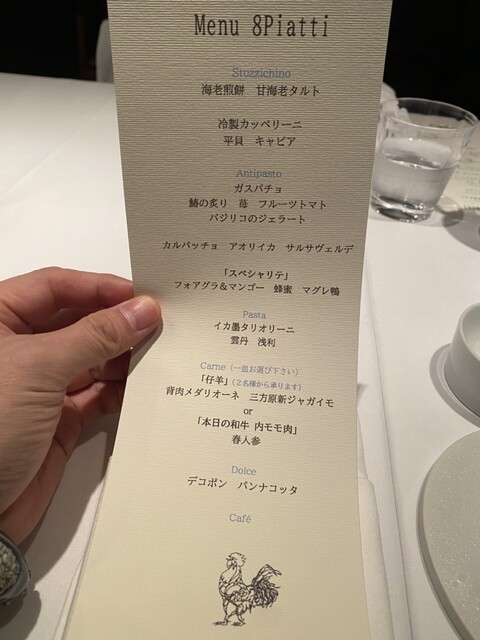 Menu 8Piatti
Stuzzichino
海老煎餅　甘海老タルト
冷製カッペリーニ
平貝　キャビア
Antipasto
ガスパチョ
鰆の炙り　苺　フルーツトマト
バジリコのジェラート
カルパッチョ　アオリイカ　サルサヴェルデ
「スペシャリテ」
フォアグラ＆マンゴー　蜂蜜　マグレ鴨
Pasta
イカ墨タリオリーニ
雲丹　浅利
Carne（一皿お選び下さい）
「仔羊」（２名様から承ります）
背肉メダリオーネ　三方原新ジャガイモ
or
「本日の和牛 内モモ肉」
春人参
Dolce
デコポン　パンナコッタ
Café